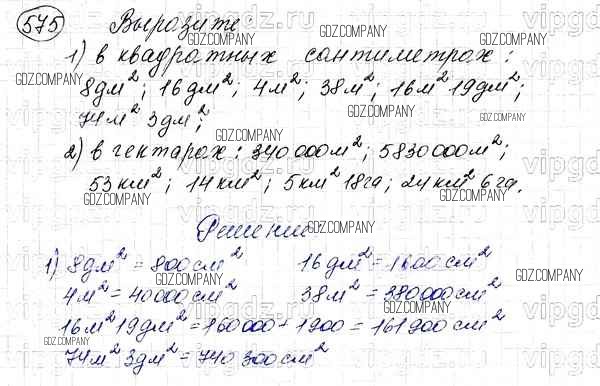 575 Выразите:
1) в квадратных сантиметрах:
8дм²; 16дм²; 4м²; 38м²; 16м² 19дм²;
74м² 3дм²;
2) в гектарах: 340000м²; 5830000м²;
53км²; 14км²; 5км² 18га; 24км² 6га.
Решение
1) 8дм² = 800см² 16дм² = 1600см²
4м² = 40000см² 38м² = 380000см²
16м² 19дм² = 160000 + 1900 = 161900см²
74м² 3дм² = 740300см²